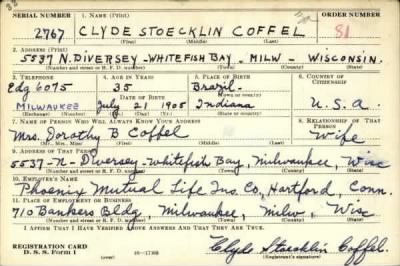 SERIAL NUMBER 1. NAME (Print) ORDER NUMBER
2767 CLYDE STOECKLIN COFFEL 81
(First) (Middle) (Last)
2. ADDRESS (Print)
5537 N. DIVERSEY - WHITEFISH BAY - MILW - WISCONSIN.
(Number and street or R. F. D. number) (Town) (County) (State)
3. TELEPHONE 4. AGE IN YEARS 5. PLACE OF BIRTH 6. COUNTRY OF CITIZENSHIP
Edg 6075 35 Brazil -
DATE OF BIRTH (Town or county)
MILWAUKEE July 21 1905 Indiana U.S.A.
(Exchange) (Number) (Mo.) (Day) (Yr.) (State or country)
7. NAME OF PERSON WHO WILL ALWAYS KNOW YOUR ADDRESS 8. RELATIONSHIP OF THAT PERSON
Mrs. Dorothy B Coffel Wife
(Mr., Mrs., Miss) (First) (Middle) (Last)
9. ADDRESS OF THAT PERSON
5537-N-Diversey-Whitefish Bay, Milwaukee, Wisc
(Number and street or R. F. D. number) (Town) (County) (State)
10. EMPLOYER'S NAME
Phoenix Mutual Life Ins. Co., Hartford, Conn.
11. PLACE OF EMPLOYMENT OR BUSINESS
710 Bankers Bldg, Milwaukee, Milw, Wisc
(Number and street or R. F. D. number) (Town) (County) (State)
I AFFIRM THAT I HAVE VERIFIED ABOVE ANSWERS AND THAT THEY ARE TRUE.
REGISTRATION CARD
D. S. S. Form 1 Clyde Stoecklin Coffel.